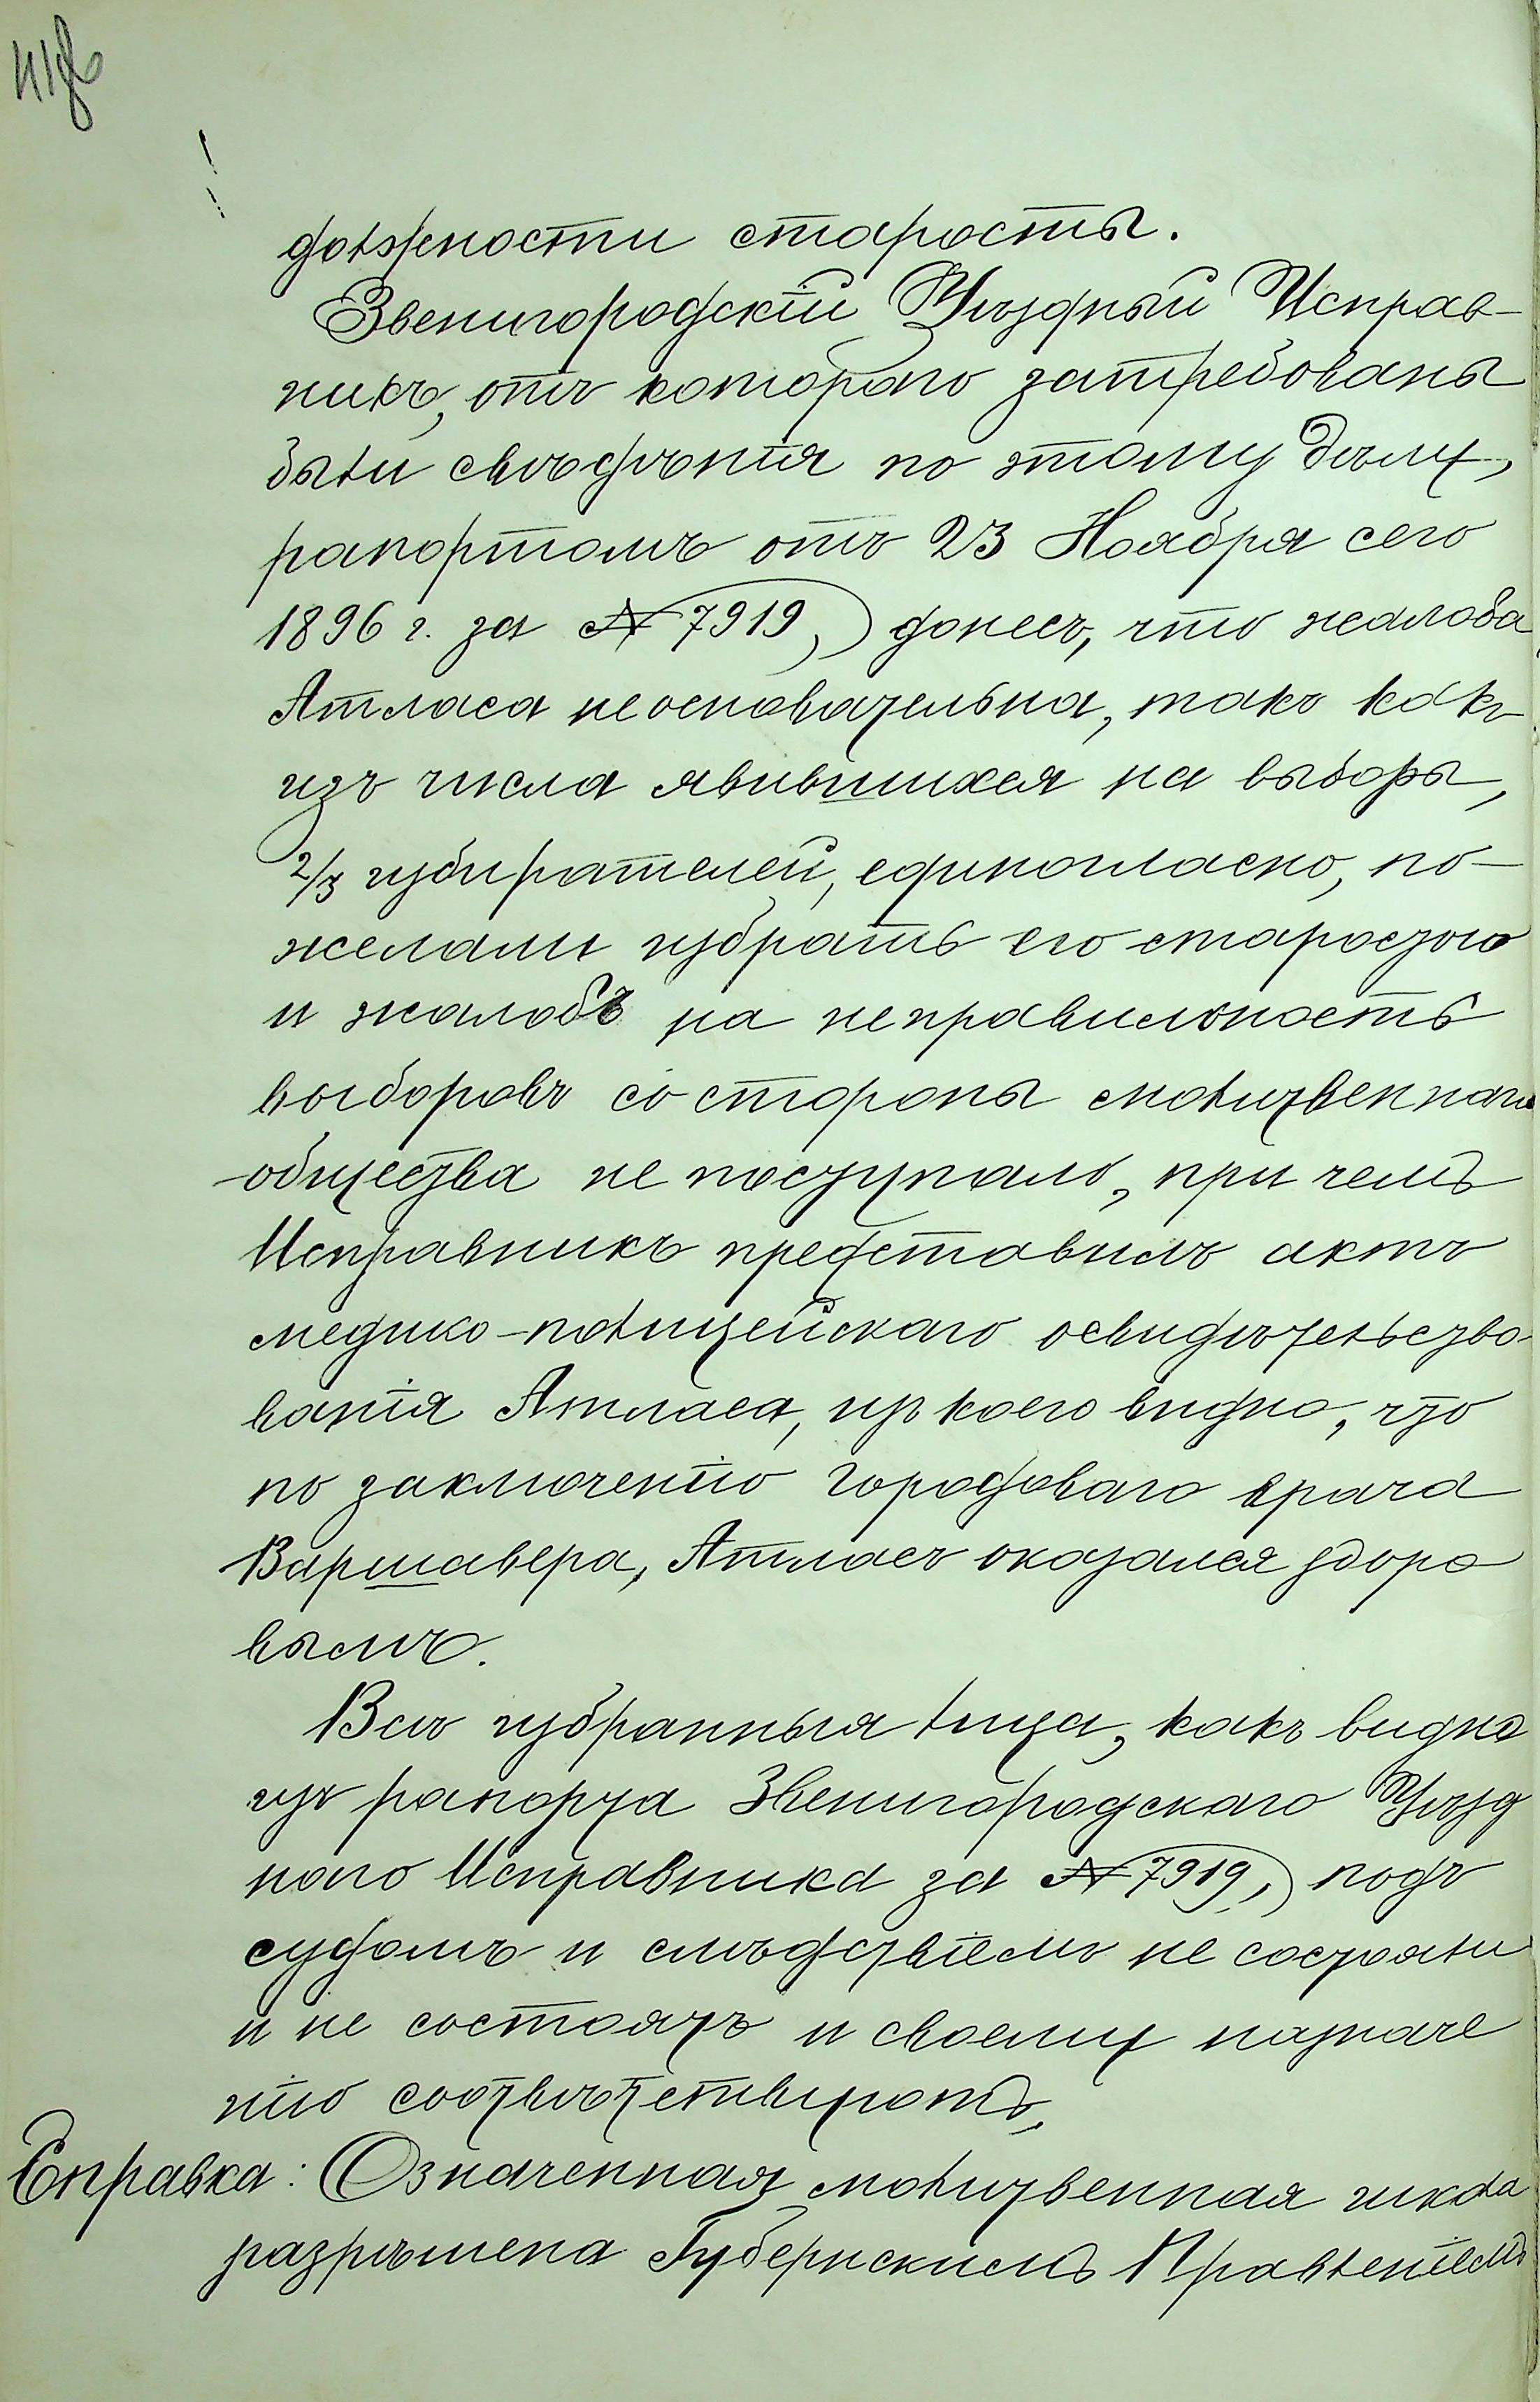 должности старосты.
Звенигородскій Уѣздный Исправ-
никъ, отъ котораго затребованы
были свѣдѣнія по этому дѣлу,
рапортомъ отъ 23 Ноября сего
1896 г. за № 7919, донесъ, что жалоба
Атласа неосновательна, такъ какъ
изъ числа явившихся на выборы,
2/3 избирателей, единогласно, по-
желали избрать его старостою
и жалобъ на неправильность
выборовъ со стороны молитвеннаго
общества не поступало, при чемъ
Исправникъ представилъ актъ
медико-полицейскаго освидѣтельство-
ванія Атласа, изъ коего видно, что
по заключенію городоваго врача
Варшавера, Атласъ оказался здоро
вымъ.
Всѣ избранныя лица, какъ видно
изъ рапорта Звенигородскаго Уѣзд
наго Исправника за № 7919, подъ
судомъ и слѣдствіемъ не состояли
и не состоятъ и своему назначе
нію соотвѣтствуютъ.
Справка: Означенная молитвенная школа
разрѣшена Губернскимъ Правленіемъ